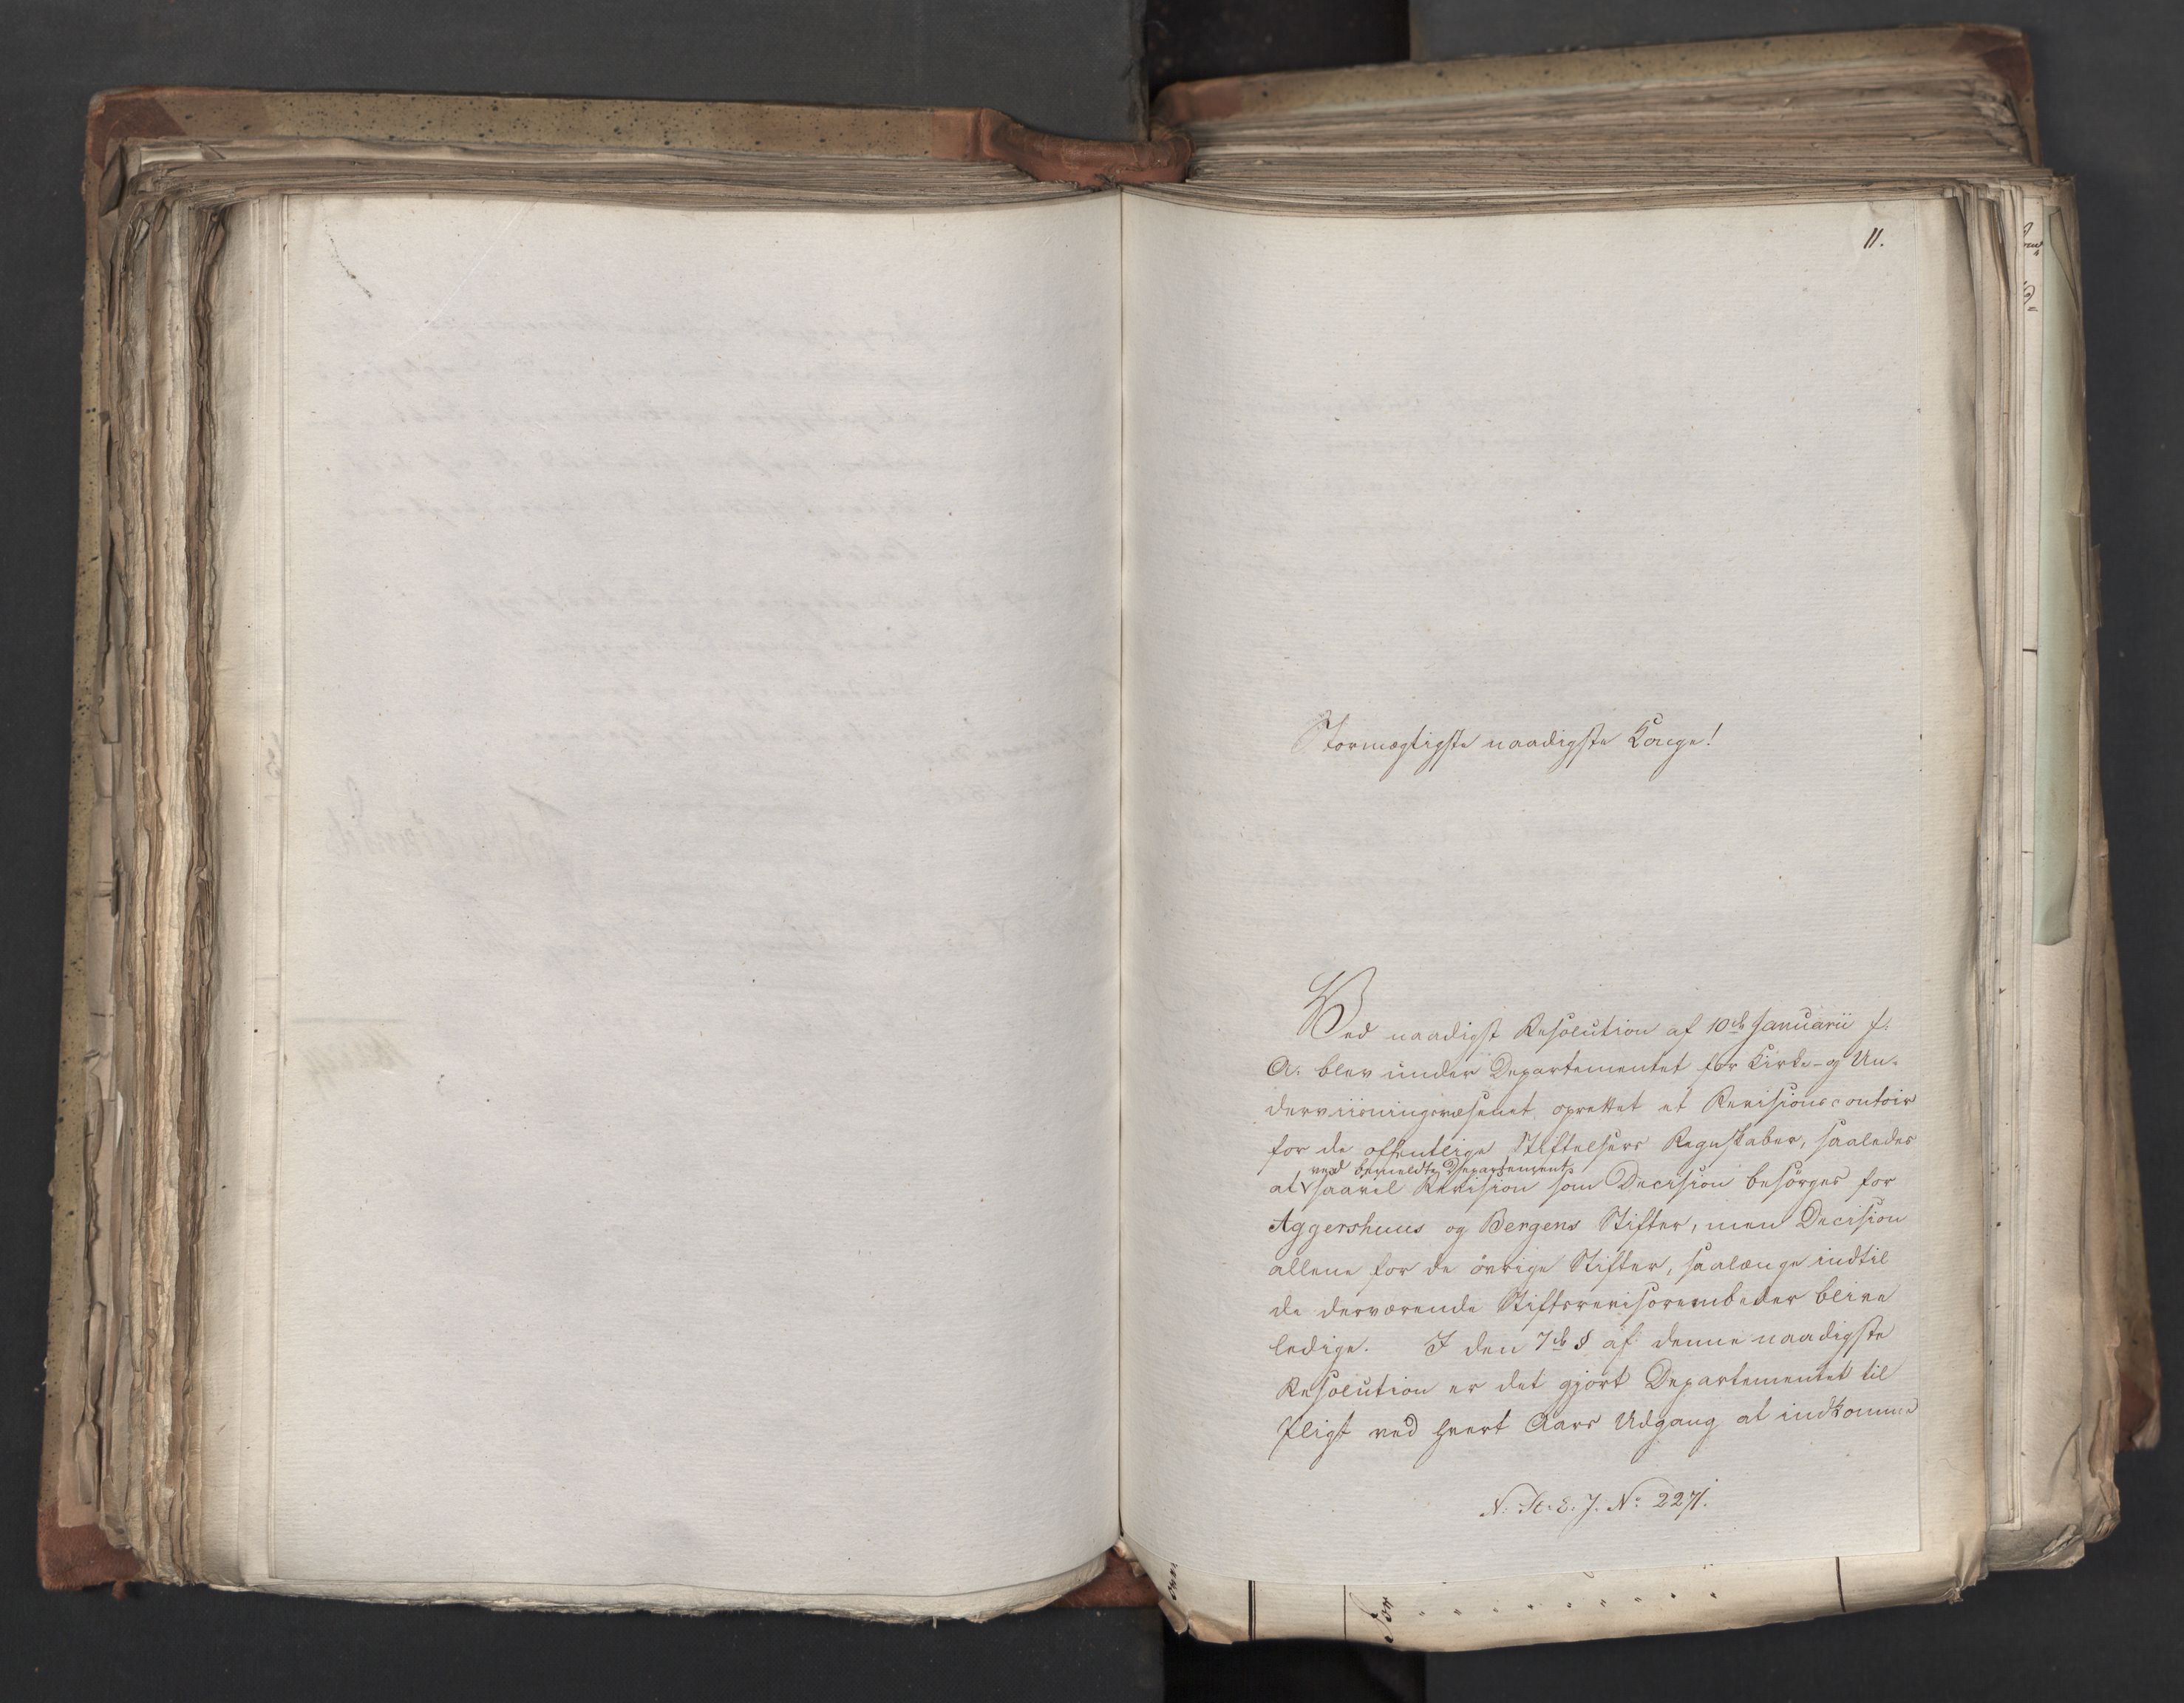 11.
Stormægtigste naadigste Konge!
Ved naadigst Resolution af 10de Januarii f.
A. blev under Departementet for Kirke- og Un-
derviisningsvæsenet oprettet et Revisionscontoir
for de offentlige Stiftelsers Regnskaber, saaledes
ved bemeldte Departement
at saavel Revision som Decision besörges for
Aggershuus og Bergens Stifter, men Decision
allene for de övrige Stifter, saalænge indtil
de derværende Stiftsrevisorembeder blive
ledige. I den 7de § af denne naadigste
Resolution er det gjort Departementet til
Pligt ved hvert Aars Udgang at indkomme
N. St. E. J. No 2271.
for